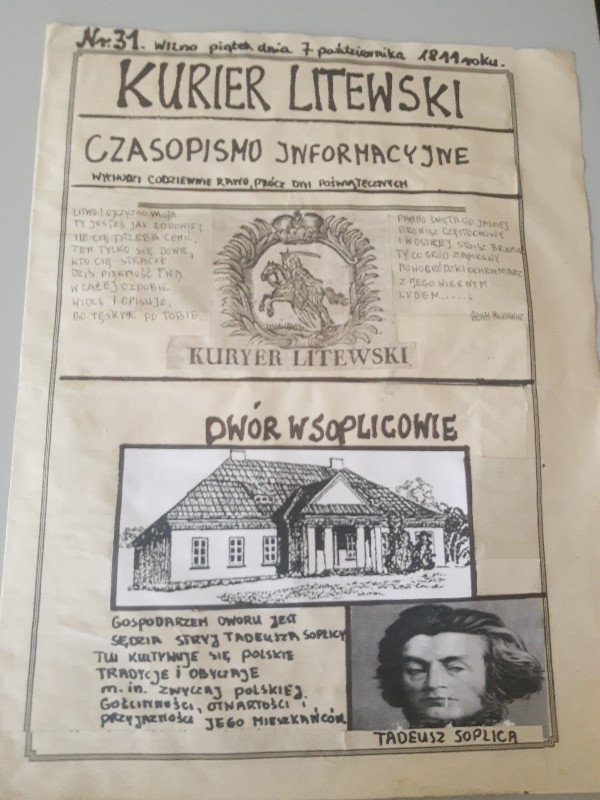 Nr.31. WILNO piątek dnia 7 października 1811 roku.
KURIER LITEWSKI
CZASOPISMO INFORMACYJNE
WYCHODZI CODZIENNIE RANO, PRÓCZ DNI POŚWIĄTECZNYCH
LITWO! OJCZYZNO MOJA
TY JESTEŚ JAK ZDROWIE;
ILE CIĘ TRZEBA CENIĆ,
TEN TYLKO SIĘ DOWIE,
KTO CIĘ STRACIŁ
DZIŚ PIĘKNOŚĆ TWĄ
W CAŁEJ OZDOBIE
WIDZĘ I OPISUJE,
BO TĘSKNIĘ PO TOBIE
PANNO ŚWIĘTA CO JASNEJ
BRONISZ CZĘSTOCHOWY
I W OSTREJ ŚWIECISZ BRAMIE
TY CO GRÓD ZAMKOWY
NOWOGRÓDZKI OCHRANIASZ
Z JEGO WIERNYM
LUDEM.....
ADAM Mickiewicz
KURYER LITEWSKI
DWÓR W SOPLICOWIE
GOSPODARZEM DWORU JEST
SĘDZIA STRYJ TADEUSZA SOPLICY
TU KULTYWUJE SIĘ POLSKIE
TRADYCJE I OBYCZAJE
m.in. ZWYCZAJ POLSKIEJ
GOŚCINNOŚCI, OTWARTOŚCI i
PRZYJAZNOŚCI JEGO MIESZKAŃCÓW
TADEUSZ SOPLICA